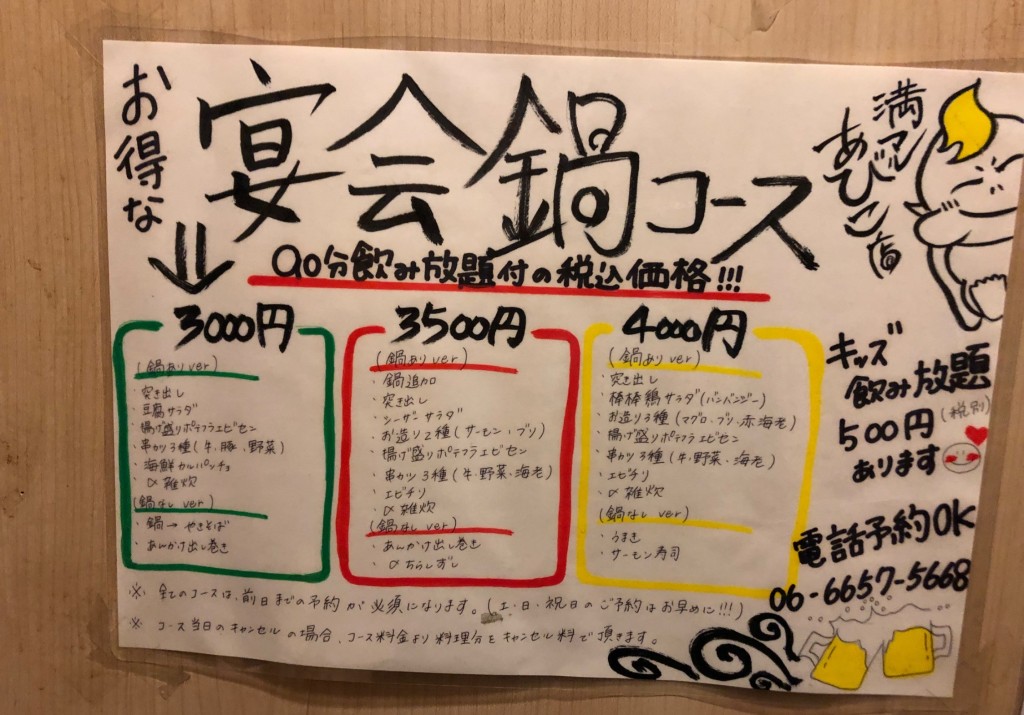 お得な
宴会鍋コース
満マル
あびこ店
90分飲み放題付の税込価格!!!
3000円
(鍋ありver)
・突き出し
・豆腐サラダ
・揚げ盛りポテフラエビセン
・串カツ3種(牛、豚、野菜)
・海鮮カルパッチョ
・〆雑炊
(鍋なし ver)
・鍋→やきそば
・あんかけ出し巻き
3500円
(鍋ありver)
・鍋追加
・突き出し
・シーザーサラダ
・お造り2種(サーモン、ブリ)
・揚げ盛りポテフラエビセン
・串カツ3種(牛、野菜、海老)
・エビチリ
・〆雑炊
(鍋なし ver)
・あんかけ出し巻き
・〆ちらしずし
4000円
(鍋ありver)
・突き出し
・棒棒鶏サラダ(バンバンジー)
・お造り3種(マグロ、ブリ、赤海老)
・揚げ盛りポテフラエビセン
・串カツ3種(牛、野菜、海老)
・エビチリ
・〆雑炊
(鍋なし ver)
・うまき
・サーモン寿司
キッズ
飲み放題
500円(税別)
あります
電話予約OK
06-6657-5668
※ 全てのコースは、前日までの予約が必須になります。(土、日、祝日のご予約はお早めに!!!)
※ コース当日のキャンセルの場合、コース料金より料理分をキャンセル料で頂きます。